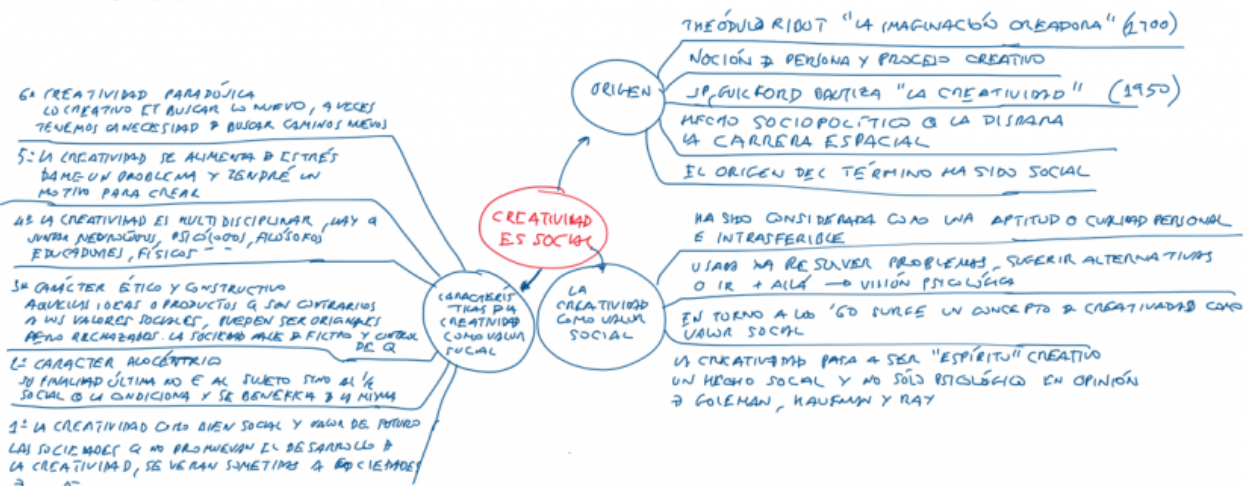 CREATIVIDAD
ES SOCIAL
ORIGEN
THEÓDULO RIBOT "LA IMAGINACIÓN CREADORA" (1700)
NOCIÓN D PERSONA Y PROCESO CREATIVO
JP, GUILFORD BAUTIZA "LA CREATIVIDAD" (1950)
HECHO SOCIOPOLÍTICO Q LA DISPARA
LA CARRERA ESPACIAL
EL ORIGEN DEL TÉRMINO HA SIDO SOCIAL
LA
CREATIVIDAD
COMO VALOR
SOCIAL
HA SIDO CONSIDERADA COMO UNA APTITUD O CUALIDAD PERSONAL
E INTRASFERIBLE
USADA XA RESOLVER PROBLEMAS, SUGERIR ALTERNATIVAS
O IR + ALLÁ → VISIÓN PSICOLÓGICA
EN TORNO A LOS '60 SURGE UN CONCEPTO D CREATIVIDAD COMO
VALOR SOCIAL
LA CREATIVIDAD PASA A SER "ESPÍRITU" CREATIVO
UN HECHO SOCIAL Y NO SÓLO PSICOLÓGICO EN OPINIÓN
D GOLEMAN, KAUFMAN Y RAY
CARACTERÍS
TICAS D LA
CREATIVIDAD
COMO VALOR
SOCIAL
6ª CREATIVIDAD PARADÓJICA
LO CREATIVO ES BUSCAR LO NUEVO, A VECES
TENEMOS LA NECESIDAD D BUSCAR CAMINOS NUEVOS
5ª LA CREATIVIDAD SE ALIMENTA D ESTRÉS
DAME UN PROBLEMA Y TENDRÉ UN
MOTIVO PARA CREAR
4ª LA CREATIVIDAD ES MULTIDISCIPLINAR, HAY Q
JUNTAR NEURÓLOGOS, PSICÓLOGOS, FILÓSOFOS
EDUCADORES, FÍSICOS
3ª CARÁCTER ÉTICO Y CONSTRUCTIVO
AQUELLAS IDEAS O PRODUCTOS Q SON CONTRARIOS
A LOS VALORES SOCIALES, PUEDEN SER ORIGINALES
PERO RECHAZADOS. LA SOCIEDAD HACE D FILTRO Y CONTROL
DE Q
2ª CARÁCTER ALOCÉNTRICO
SU FINALIDAD ÚLTIMA NO E AL SUJETO SINO AL
SOCIAL Q LA CONDICIONA Y SE BENEFICIA D LA MISMA
1ª LA CREATIVIDAD COMO BIEN SOCIAL Y VALOR DE FUTURO
LAS SOCIEDADES Q NO PROMUEVAN EL DESARROLLO D
LA CREATIVIDAD, SE VERAN SOMETIDAS A SOCIEDADES